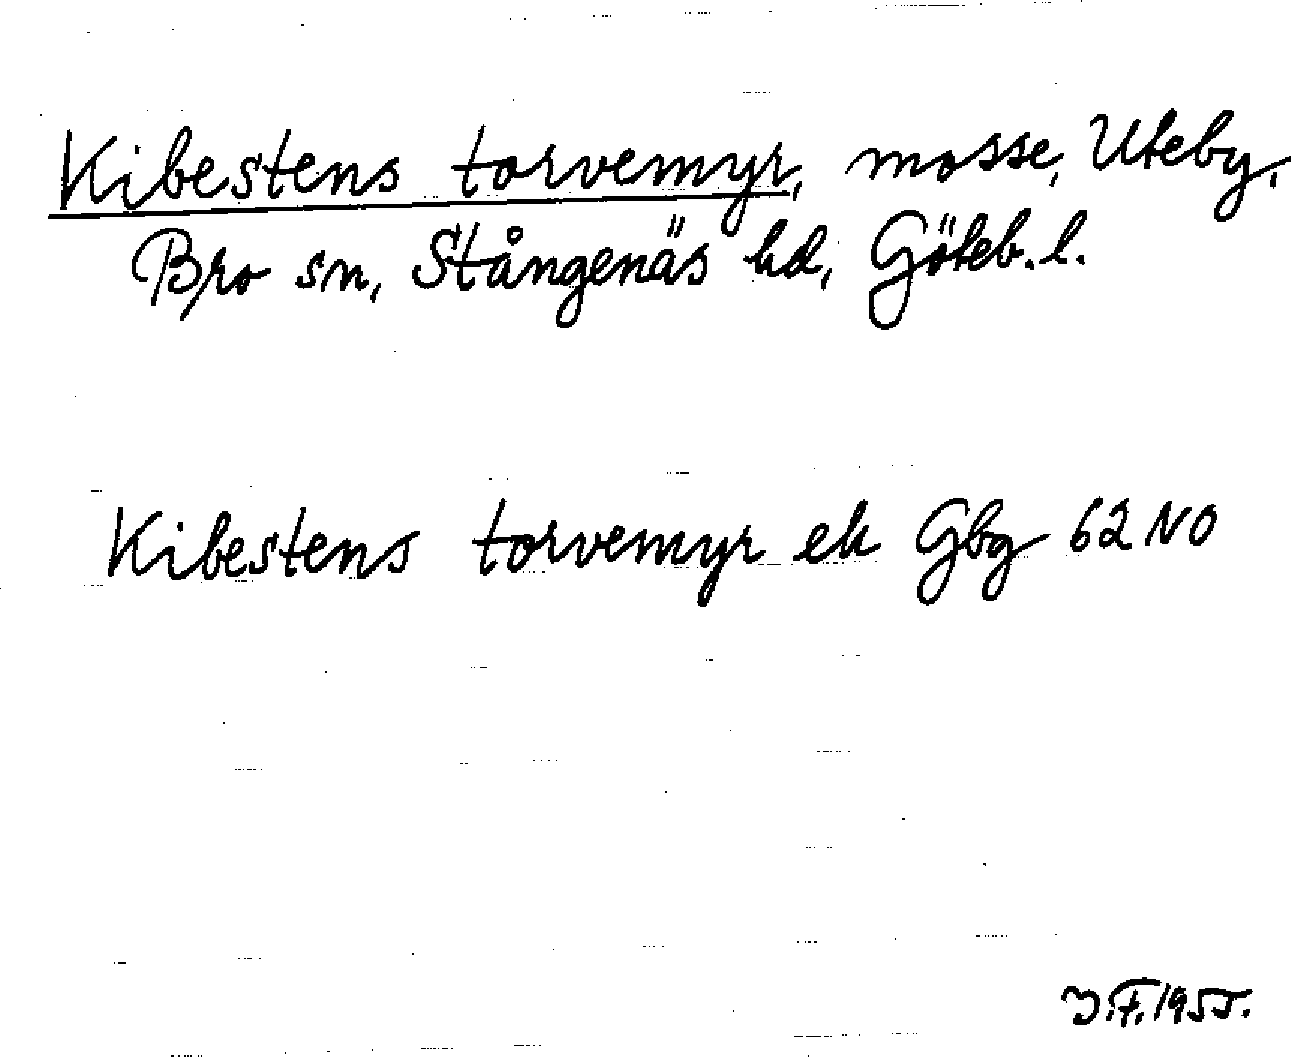 Kibestens torvemyr, mosse, Uteby,
Bro sn, Stångenäs hd, Göteb. l.
Kibestens torvemyr ek Gbg 62 NO
J.F. 1955.